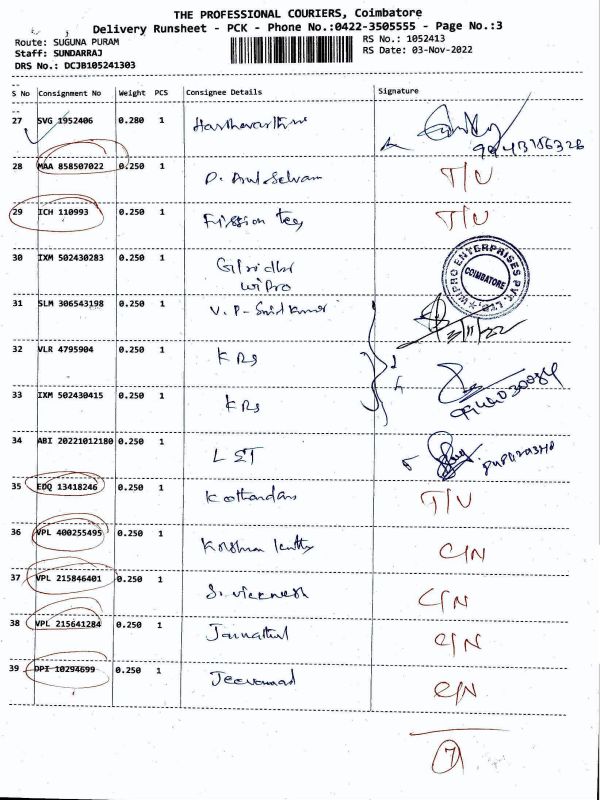 THE PROFESSIONAL COURIERS, Coimbatore
Delivery Runsheet - PCK - Phone No.:0422-3505555 - Page No.:3
Route: SUGUNA PURAM
Staff: SUNDARRAJ
DRS No.: DCJB105241303
RS No.: 1052413
RS Date: 03-Nov-2022
S No Consignment No Weight PCS Consignee Details Signature
27 SVG 1952406 0.280 1
28 MAA 858507022 0.250 1 D. Arul Selvam T/U
29 ICH 110993 0.250 1 Fission T/U
30 IXM 502430283 0.250 1
Wipro
WIPRO ENTERPRISES PVT. LTD. COIMBATORE
31 SLM 306543198 0.250 1 V. P.
3/11/22
32 VLR 4795904 0.250 1 KRS
33 IXM 502430415 0.250 1 KRS
34 ABI 20221012180 0.250 1 L ST
35 EDQ 13418246 0.250 1 T/U
36 VPL 400255495 0.250 1 C/N
37 VPL 215846401 0.250 1 C/N
38 VPL 215641284 0.250 1 C/N
39 DPI 10294699 0.250 1 C/N
7